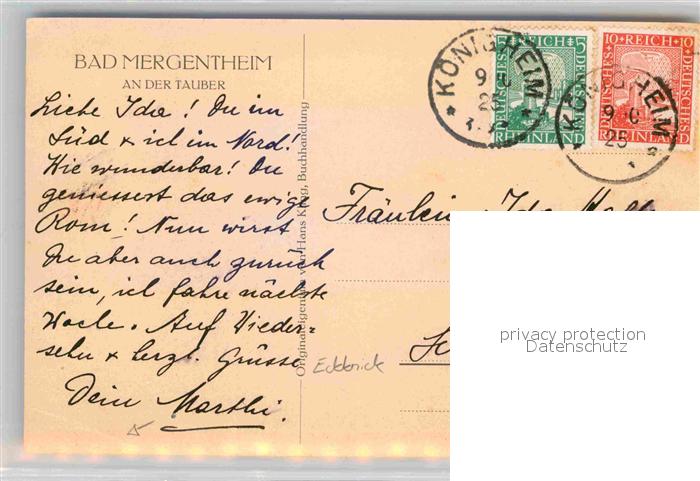 BAD MERGENTHEIM
AN DER TAUBER
Liebe Ida! Du im
Süd & ich im Nord!
Wie wunderbar! Du
geniessest das ewige
Rom! Nun wirst
Du aber auch zurück
sein, ich fahre nächste
Woche. Auf Wieder=
sehn & herzl. Grüsse
Dein Marthi.
Originaleigentum von Hans Kling, Buchhandlung
5 REICH 5
DEUTSCHES
RHEINLAND
10 REICH 10
DEUTSCHES
RHEINLAND
KÖNIGHEIM
25
KÖNIGHEIM
25
Fräulein Ida
privacy protection
Datenschutz